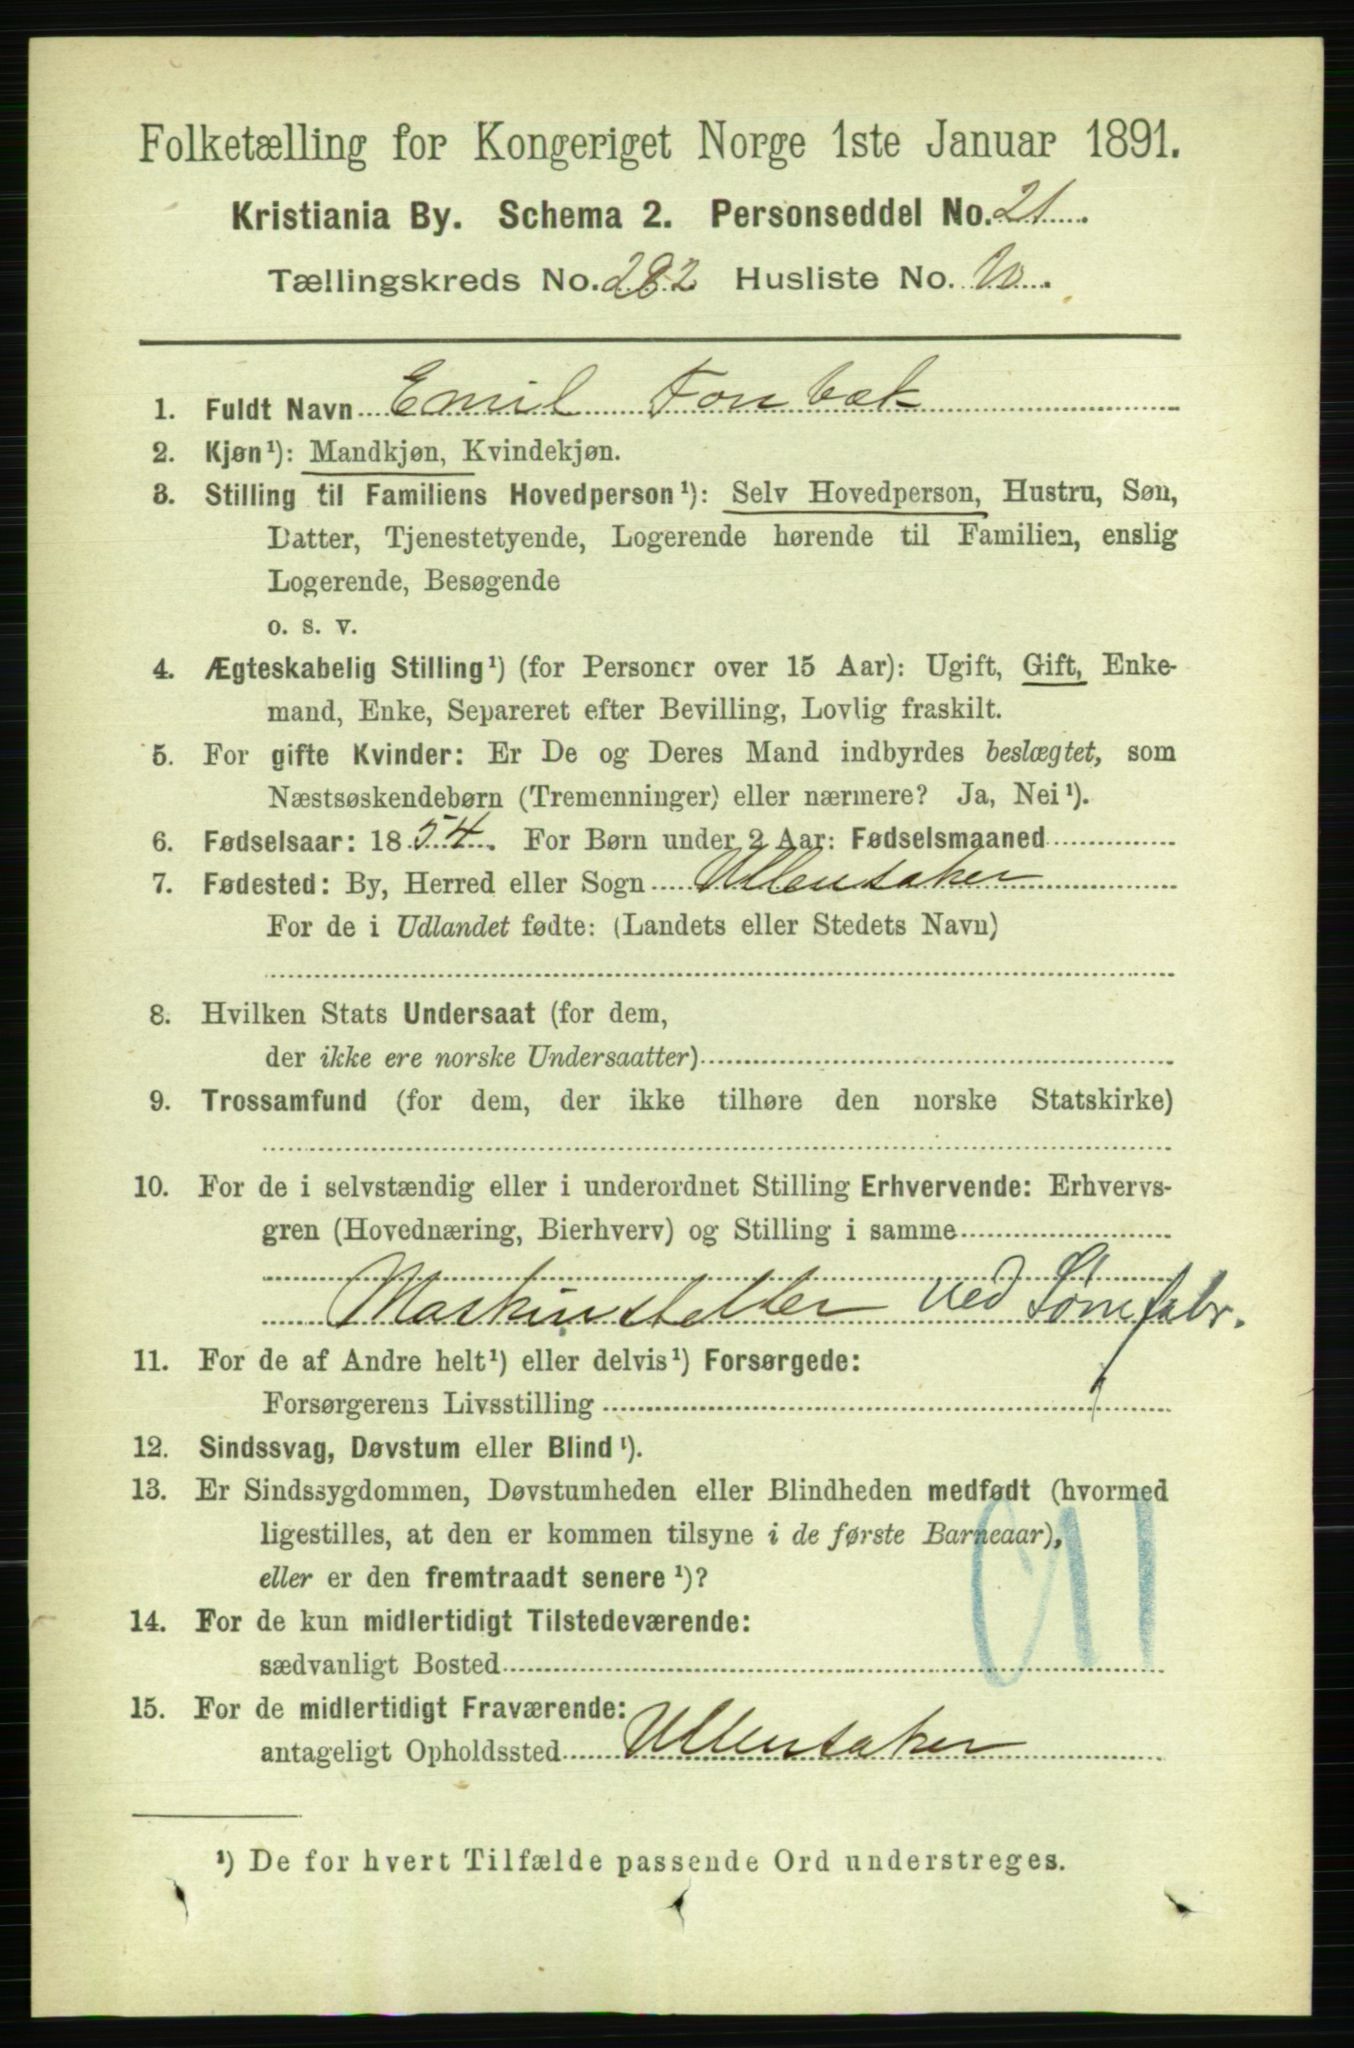 Folketælling for Kongeriget Norge 1ste Januar 1891.
Kristiania By. Schema 2. Personseddel No. 21
Tællingskreds No. 282 Husliste No.
1. Fuldt Navn Emil Fonbæk
2. Kjøn¹): Mandkjøn, Kvindekjøn.
3. Stilling til Familiens Hovedperson¹): Selv Hovedperson, Hustru, Søn,
Datter, Tjenestetyende, Logerende hørende til Familien, enslig
Logerende, Besøgende
o. s. v.
4. Ægteskabelig Stilling¹) (for Personer over 15 Aar): Ugift, Gift, Enke-
mand, Enke, Separeret efter Bevilling, Lovlig fraskilt.
5. For gifte Kvinder: Er De og Deres Mand indbyrdes beslægtet, som
Næstsøskendebørn (Tremenninger) eller nærmere? Ja, Nei¹).
6. Fødselsaar: 1854. For Børn under 2 Aar: Fødselsmaaned
7. Fødested: By, Herred eller Sogn Ullensaker
For de i Udlandet fødte: (Landets eller Stedets Navn)
8. Hvilken Stats Undersaat (for dem,
der ikke ere norske Undersaatter)
9. Trossamfund (for dem, der ikke tilhøre den norske Statskirke)
10. For de i selvstændig eller i underordnet Stilling Erhvervende: Erhvervs-
gren (Hovednæring, Bierhverv) og Stilling i samme
Maskinsteller ved Sømfabr.
11. For de af Andre helt¹) eller delvis¹) Forsørgede:
Forsørgerens Livsstilling
12. Sindssvag, Døvstum eller Blind¹).
13. Er Sindssygdommen, Døvstumheden eller Blindheden medfødt (hvormed
ligestilles, at den er kommen tilsyne i de første Barneaar),
eller er den fremtraadt senere¹)?
14. For de kun midlertidigt Tilstedeværende:
sædvanligt Bosted
15. For de midlertidigt Fraværende:
antageligt Opholdssted Ullensaker
¹) De for hvert Tilfælde passende Ord understreges.